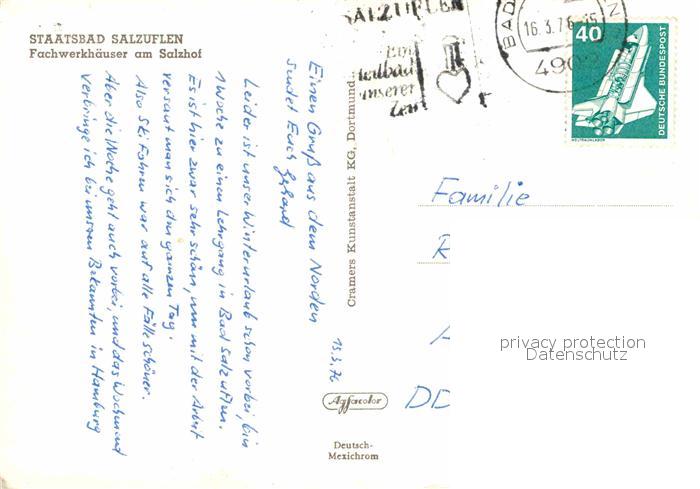 STAATSBAD SALZUFLEN
Fachwerkhäuser am Salzhof
Einen Gruß aus dem Norden
sendet Euch
Leider ist unser Winterurlaub schon vorbei, bin
1 Woche zu einen Lehrgang in Bad Salzuflen.
Es ist hier zwar sehr schön, nur mit der Arbeit
versaut man sich den ganzen Tag.
Also Skifahren war auf alle Fälle schöner.
Aber die Woche geht auch vorbei, und das Wochenend
verbringe ich bei unseren Bekannten in Hamburg
Cramers Kunstanstalt KG, Dortmund
Agfacolor
Deutsch-
Mexichrom
SALZUFLEN
unserer
Zeit
BAD
16.3.76
490
40
DEUTSCHE BUNDESPOST
WELTRAUMLABOR
Familie
R
DD
privacy protection
Datenschutz